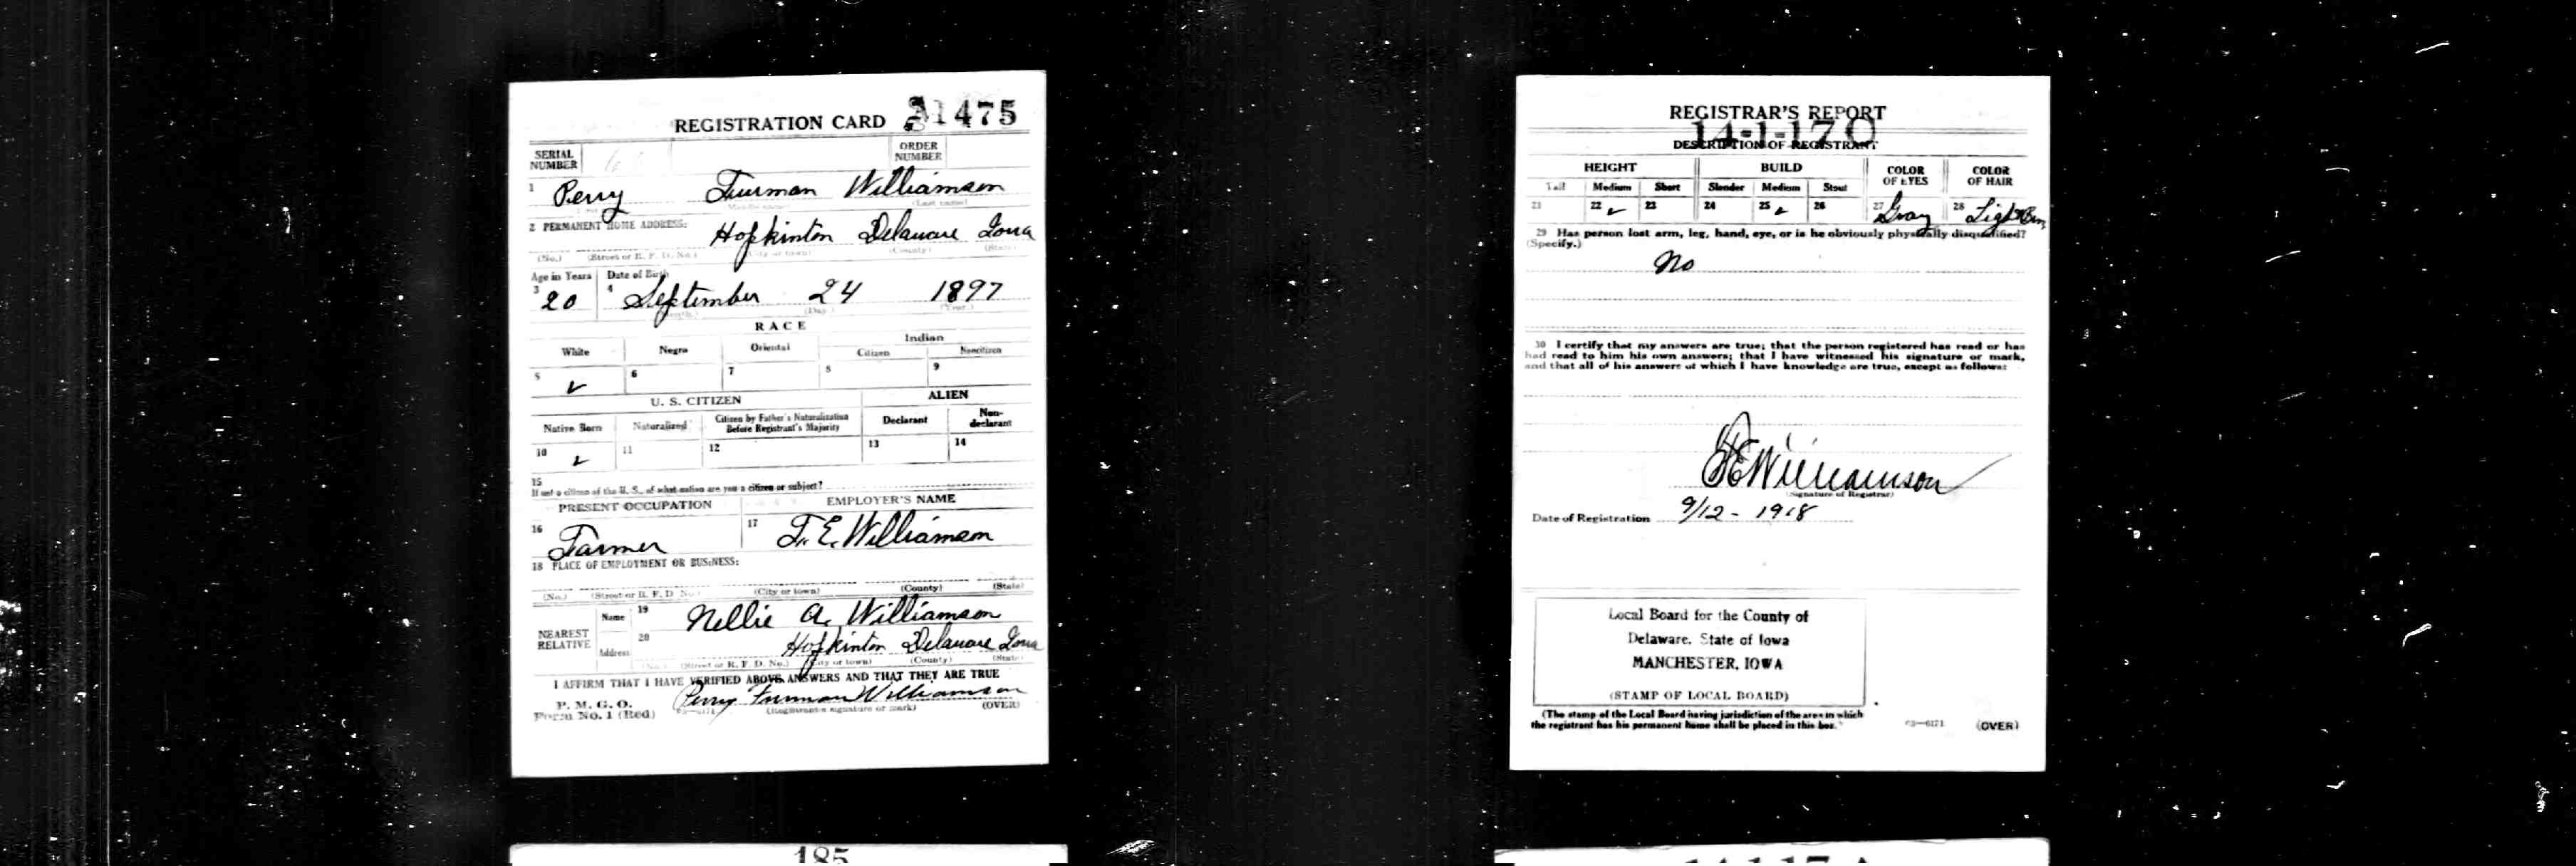 REGISTRATION CARD 1475
SERIAL NUMBER
ORDER NUMBER
1 Perry Furman Williamson
(Last name)
2 PERMANENT HOME ADDRESS: Hopkinton Delaware Iowa
(No.) (Street or R. F. D. No.) (City or town) (County) (State)
Age in Years Date of Birth
3 20 4 September 24 1897
(Month.) (Day.) (Year.)
RACE
White Negro Oriental Indian
Citizen Noncitizen
5 ✓ 6 7 8 9
U. S. CITIZEN ALIEN
Native Born Naturalized Citizen by Father's Naturalization Before Registrant's Majority Declarant Non-declarant
10 ✓ 11 12 13 14
15
If not a citizen of the U. S., of what nation are you a citizen or subject?
PRESENT OCCUPATION EMPLOYER'S NAME
16 Farmer 17 F. E. Williamson
18 PLACE OF EMPLOYMENT OR BUSINESS:
(No.) (Street or R. F. D. No.) (City or town) (County) (State)
NEAREST RELATIVE Name 19 Nellie A. Williamson
Address 20 Hopkinton Delaware Iowa
(No.) (Street or R. F. D. No.) (City or town) (County) (State)
I AFFIRM THAT I HAVE VERIFIED ABOVE ANSWERS AND THAT THEY ARE TRUE
P. M. G. O.
Form No. 1 (Red) Perry Furman Williamson
(Registrant's signature or mark) (OVER)
185
REGISTRAR'S REPORT
14-1-17 C
DESCRIPTION OF REGISTRANT
HEIGHT BUILD COLOR OF EYES COLOR OF HAIR
Tall Medium Short Slender Medium Stout
21 22 ✓ 23 24 25 ✓ 26 27 Gray 28 Light Brn
29 Has person lost arm, leg, hand, eye, or is he obviously physically disqualified?
(Specify.)
No
30 I certify that my answers are true; that the person registered has read or has
had read to him his own answers; that I have witnessed his signature or mark,
and that all of his answers of which I have knowledge are true, except as follows:
Williamson
(Signature of Registrar)
Date of Registration 9/12 - 1918
Local Board for the County of
Delaware, State of Iowa
MANCHESTER, IOWA
(STAMP OF LOCAL BOARD)
(The stamp of the Local Board having jurisdiction of the area in which
the registrant has his permanent home shall be placed in this box.)
03—6171 (OVER)